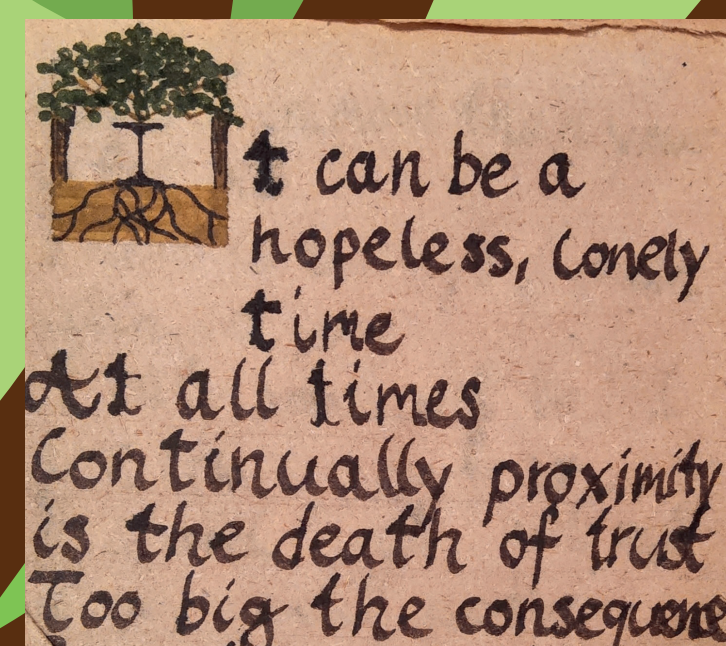 It can be a
hopeless, lonely
time
At all times
Continually proximity
is the death of trust
Too big the